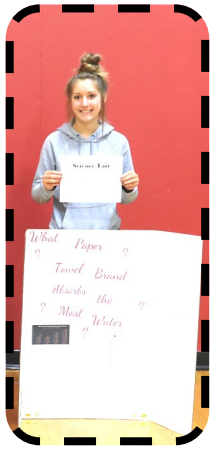 Science Fair
What Paper ?
?
Towel Brand
Absorbs the
? Most Water ?
?